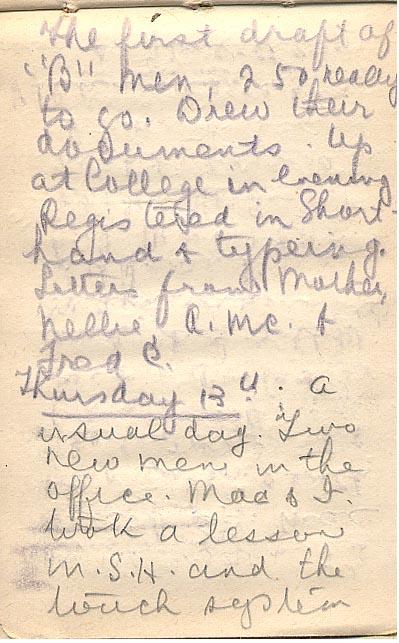 The first draft of
"B" men, 250, ready
to go. Drew their
documents. Up
at College in evening
Registered in Short-
hand & typering.
Letters from Mother,
Nellie, A. Mc. &
Fred C.
Thursday 13th. A
usual day. Two
new men in the
office. Mac & I.
took a lesson
in S.H. and the
touch system